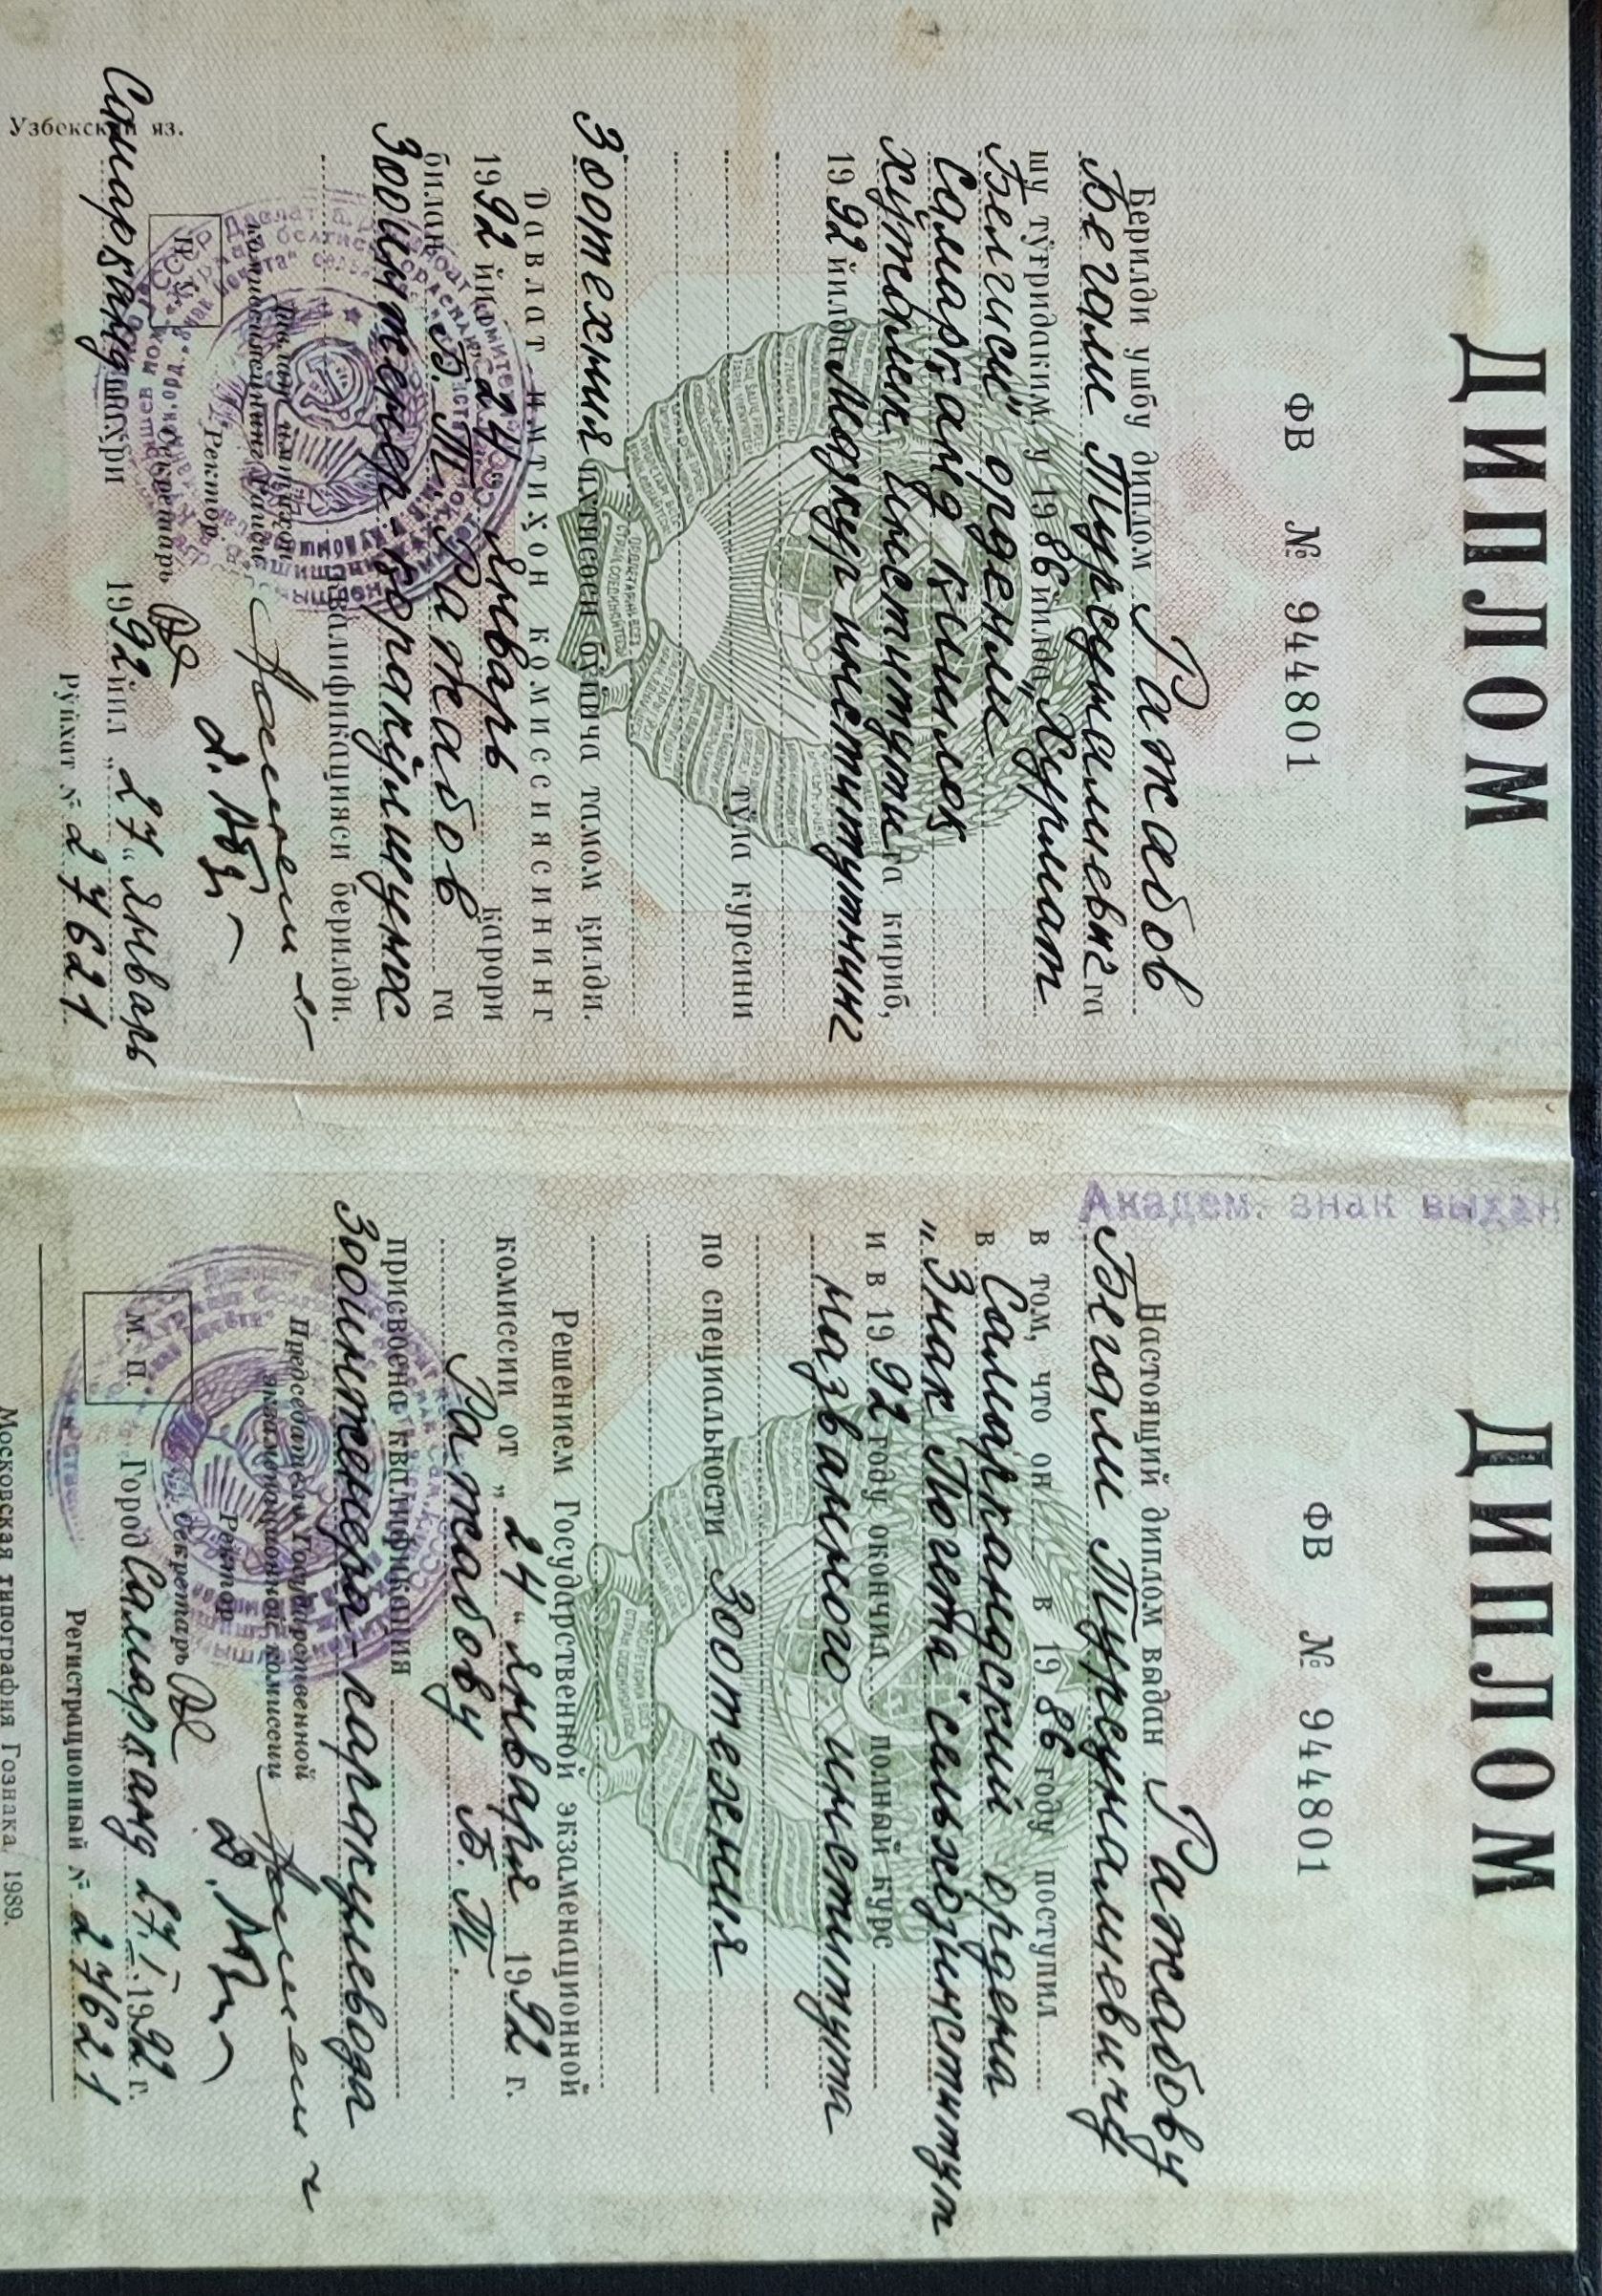 ДИПЛОМ
ФВ № 944801
Берилди ушбу диплом Ражабов
Бегали Турсуналиевичга
шу тўғридаким, у 1986 йилда „Ҳурмат
Белгиси" орденли
Самарқанд қишлоқ
хўжалик институтига кириб,
1992 йилда Мазкур институтнинг
тўла курсини
Зоотехния ихтисоси бўйича тамом қилди.
Давлат имтиҳон комиссиясининг
1992 йил „24" январь қарори
билан Б. Т. Ражабов га
Зооинженер-қоракўлшунос
квалификацияси берилди.
Давлат имтиҳон
комиссиясининг Раиси
Ректор
Секретарь
М. Ў.
Самарқанд шаҳри 1992 йил „27" январь
Рўйхат № 27621
Узбекский яз.
Академ. знак выдан
ДИПЛОМ
ФВ № 944801
Настоящий диплом выдан Ражабову
Бегали Турсуналиевичу
в том, что он в 1986 году поступил
в Самаркандский ордена
„Знак Почета" сельхозинститут
и в 1992 году окончил полный курс
названного института
по специальности Зоотехния
Решением Государственной экзаменационной
комиссии от „24" января 1992 г.
Ражабову Б. Т.
присвоена квалификация
Зооинженера-каракулевода
Председатель Государственной
экзаменационной комиссии
Ректор
Секретарь
М. П.
Город Самарканд 27. I. 1992 г.
Регистрационный № 27621
Московская типография Гознака. 1989.